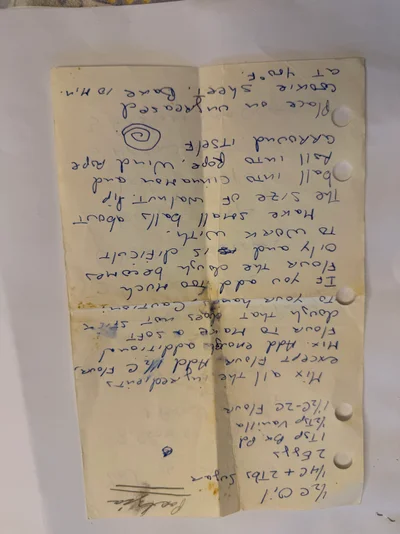 1/2 C Oil
1/4 C + 2 Tbs Sugar
2 Eggs
1 Tsp Bk. Pd
1/2 Tsp Vanilla
1 1/2 C - 2 C Flour
Mix all the ingredients
except Flour. Add 1 1/2 C Flour.
Mix. Add enough additional
Flour to make a soft
dough that does not stick
to your hand. Caution:
If you add too much
Flour the dough becomes
oily and is difficult
to work with.
Make small balls about
the size of walnut. Dip
ball into cinnamon and
Roll into rope. Wind rope
arround itself
Place on ungreased
cookie sheet. Bake 10 min.
at 400°F.